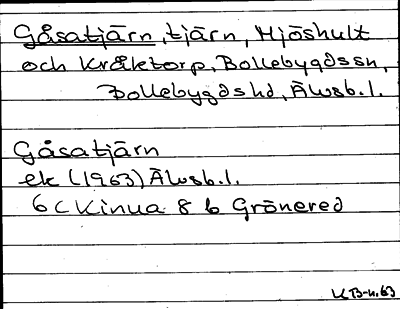 Gåsatjärn, tjärn, Mjöshult
och Kråktorp, Bollebygdssn,
Bollebygdshd, Älvsb.l.
Gåsatjärn
ek (1963) Älvsb.l.
6 C Kinna 8 b Grönered
KTB-n.63